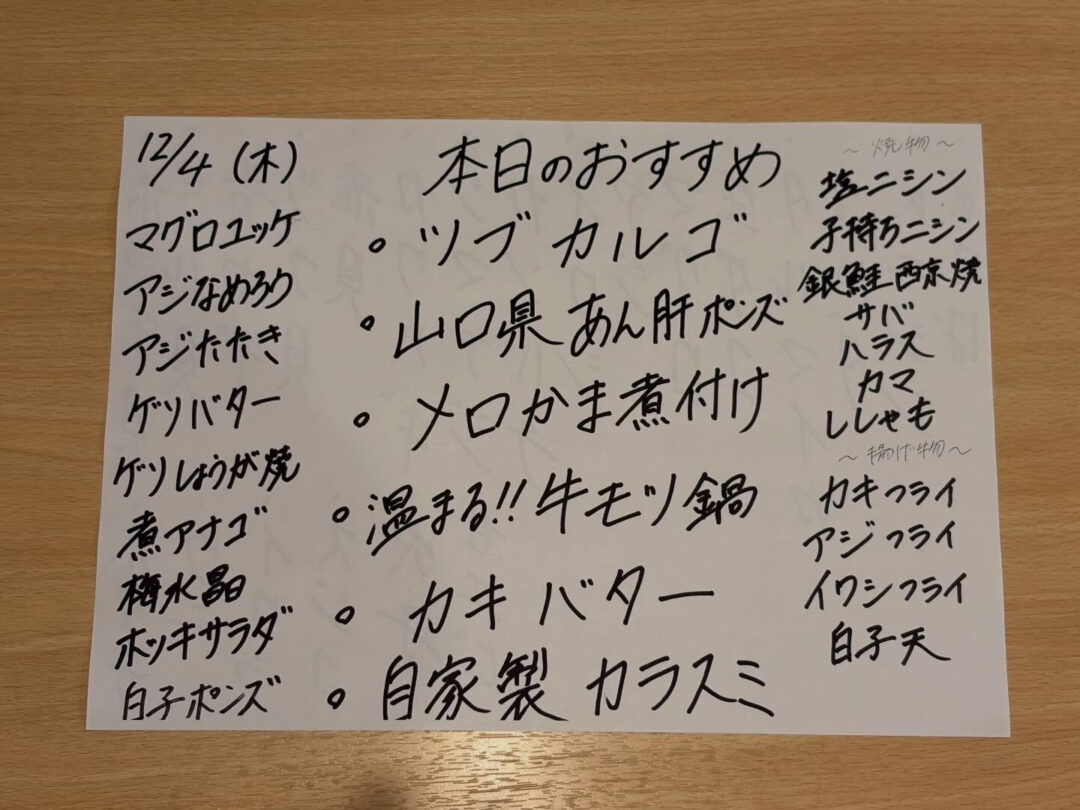 12/4(木)
マグロユッケ
アジなめろう
アジたたき
ゲソバター
ゲソしょうが焼
煮アナゴ
梅水晶
ホッキサラダ
白子ポンズ
本日のおすすめ
。ツブカルゴ
。山口県あん肝ポンズ
。メロかま煮付け
。温まる!!牛モツ鍋
。カキバター
。自家製カラスミ
～焼物～
塩ニシン
子持ちニシン
銀鮭西京焼
サバ
ハラス
カマ
ししゃも
～揚げ物～
カキフライ
アジフライ
イワシフライ
白子天